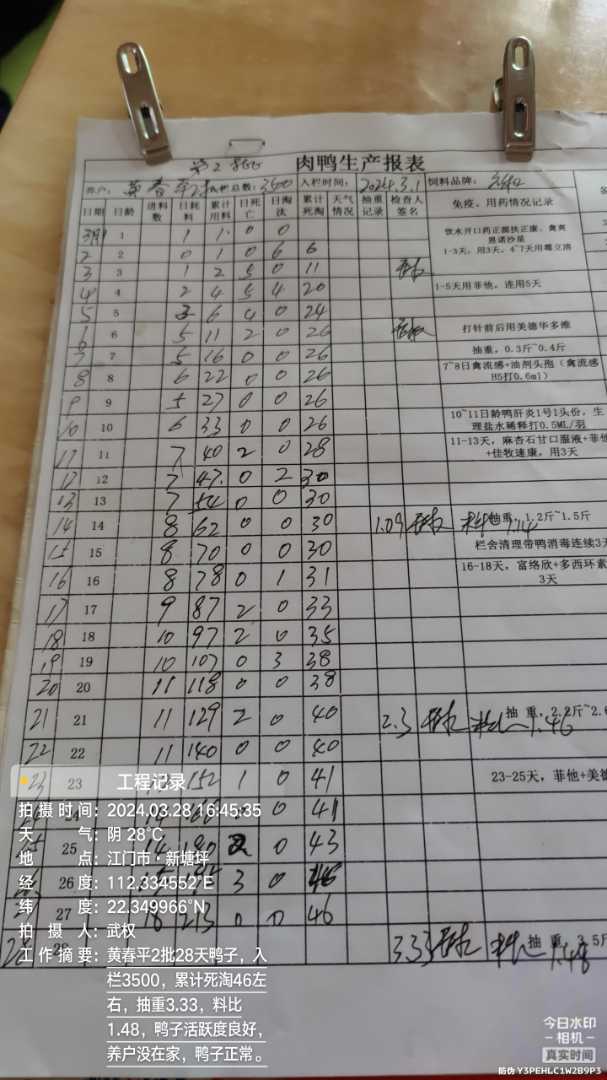 第2批 肉鸭生产报表
养户: 黄春平 入栏总数: 3500 入栏时间: 2024.3.1 饲料品牌:
日期 日龄 进料数 日耗料 累计用料 日死亡 日淘汰 累计死淘 天气情况 抽重记录 检查人签名 免疫、用药情况记录
1 1 1 0 0 饮水开口药正菌扶正康、禽爽恩诺沙星
2 2 0 1 0 6 6 1-3天,用3天,4~7天用霉立清
3 3 1 2 5 0 11
4 4 2 4 5 4 20 1-5天用菲他,连用5天
5 5 6 4 0 24
6 6 5 11 2 0 26 打针前后用美德华多维
7 7 5 16 0 0 26 抽重,0.3斤~0.4斤
8 8 6 22 0 0 26 7~8日禽流感+油剂头孢(禽流感H5打0.6ml)
9 9 5 27 0 0 26
10 10 6 33 0 0 26 10~11日龄鸭肝炎1号1头份,生理盐水稀释打0.5ML/羽
11 11 7 40 2 0 28 11-13天,麻杏石甘口服液+菲他+佳牧速康,用3天
12 12 7 47 0 2 30
13 13 7 54 0 0 30
14 14 8 62 0 0 30 1.09 抽重,1.2斤~1.5斤
15 15 8 70 0 0 30 栏舍清理带鸭消毒连续3天
16 16 8 78 0 1 31 16-18天,富络欣+多西环素 3天
17 17 9 87 2 0 33
18 18 10 97 2 0 35
19 19 10 107 0 3 38
20 20 11 118 0 0 38
21 21 11 129 2 0 40 2.3 抽重,2.2斤~2. 1.46
22 22 11 140 0 0 40
23 23 152 1 0 41 23-25天,菲他+美德
0 41
25 0 43
26 3 0 46
27 213 0 0 46
3.33 抽重,3.5斤 1.48
工程记录
拍摄时间: 2024.03.28 16:45:35
天气: 阴 28℃
地点: 江门市·新塘坪
经度: 112.334552°E
纬度: 22.349966°N
拍摄人: 武权
工作摘要: 黄春平2批28天鸭子,入
栏3500,累计死淘46左
右,抽重3.33,料比
1.48,鸭子活跃度良好,
养户没在家,鸭子正常。
今日水印
-相机-
真实时间
防伪 Y3PEHLC1W2B9P3